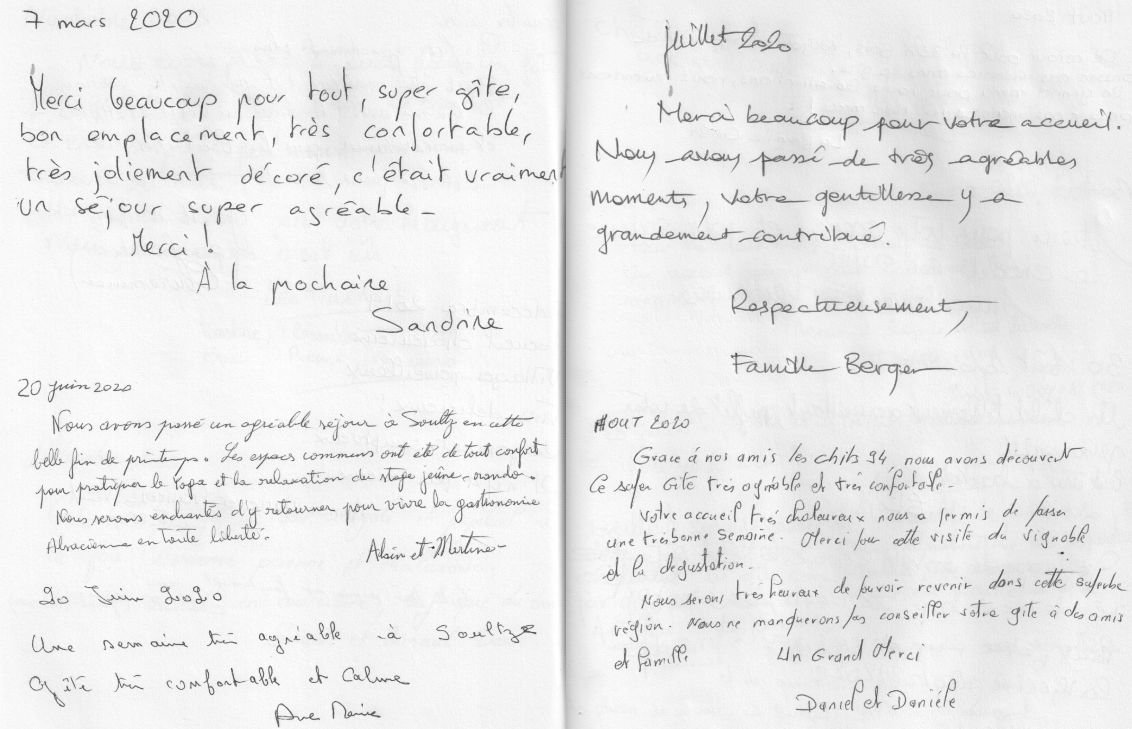 7 mars 2020
Merci beaucoup pour tout, super gîte,
bon emplacement, très confortable,
très joliement décoré, c'était vraiment
un séjour super agréable -
Merci !
À la prochaine
Sandrine
20 juin 2020
Nous avons passé un agréable séjour à Soultz en cette
belle fin de printemps. Les espaces communs ont été de tout confort
pour pratiquer le Yoga et la relaxation du stage jeûne-rando.
Nous serons enchantés d'y retourner pour vivre la gastronomie
Alsacienne en toute liberté.
Alain et Martine
20 Juin 2020
Une semaine très agréable à Soultz
Gîte très confortable et Calme
Anne Marie
juillet 2020
Merci beaucoup pour votre accueil.
Nous avons passé de très agréables
moments, votre gentillesse y a
grandement contribué.
Respectueusement,
Famille Berger
AOUT 2020
Grace á nos amis les chtis 94, nous avons découvert
Ce super Gîte très agréable et très confortable -
Votre accueil très chaleureux nous a permis de passer
une très bonne Semaine. Merci pour cette visite du vignoble
et la dégustation.
Nous serons très heureux de pouvoir revenir dans cette superbe
région. Nous ne manquerons pas conseiller votre gîte à des amis
et famille
Un Grand Merci
Daniel et Danièle